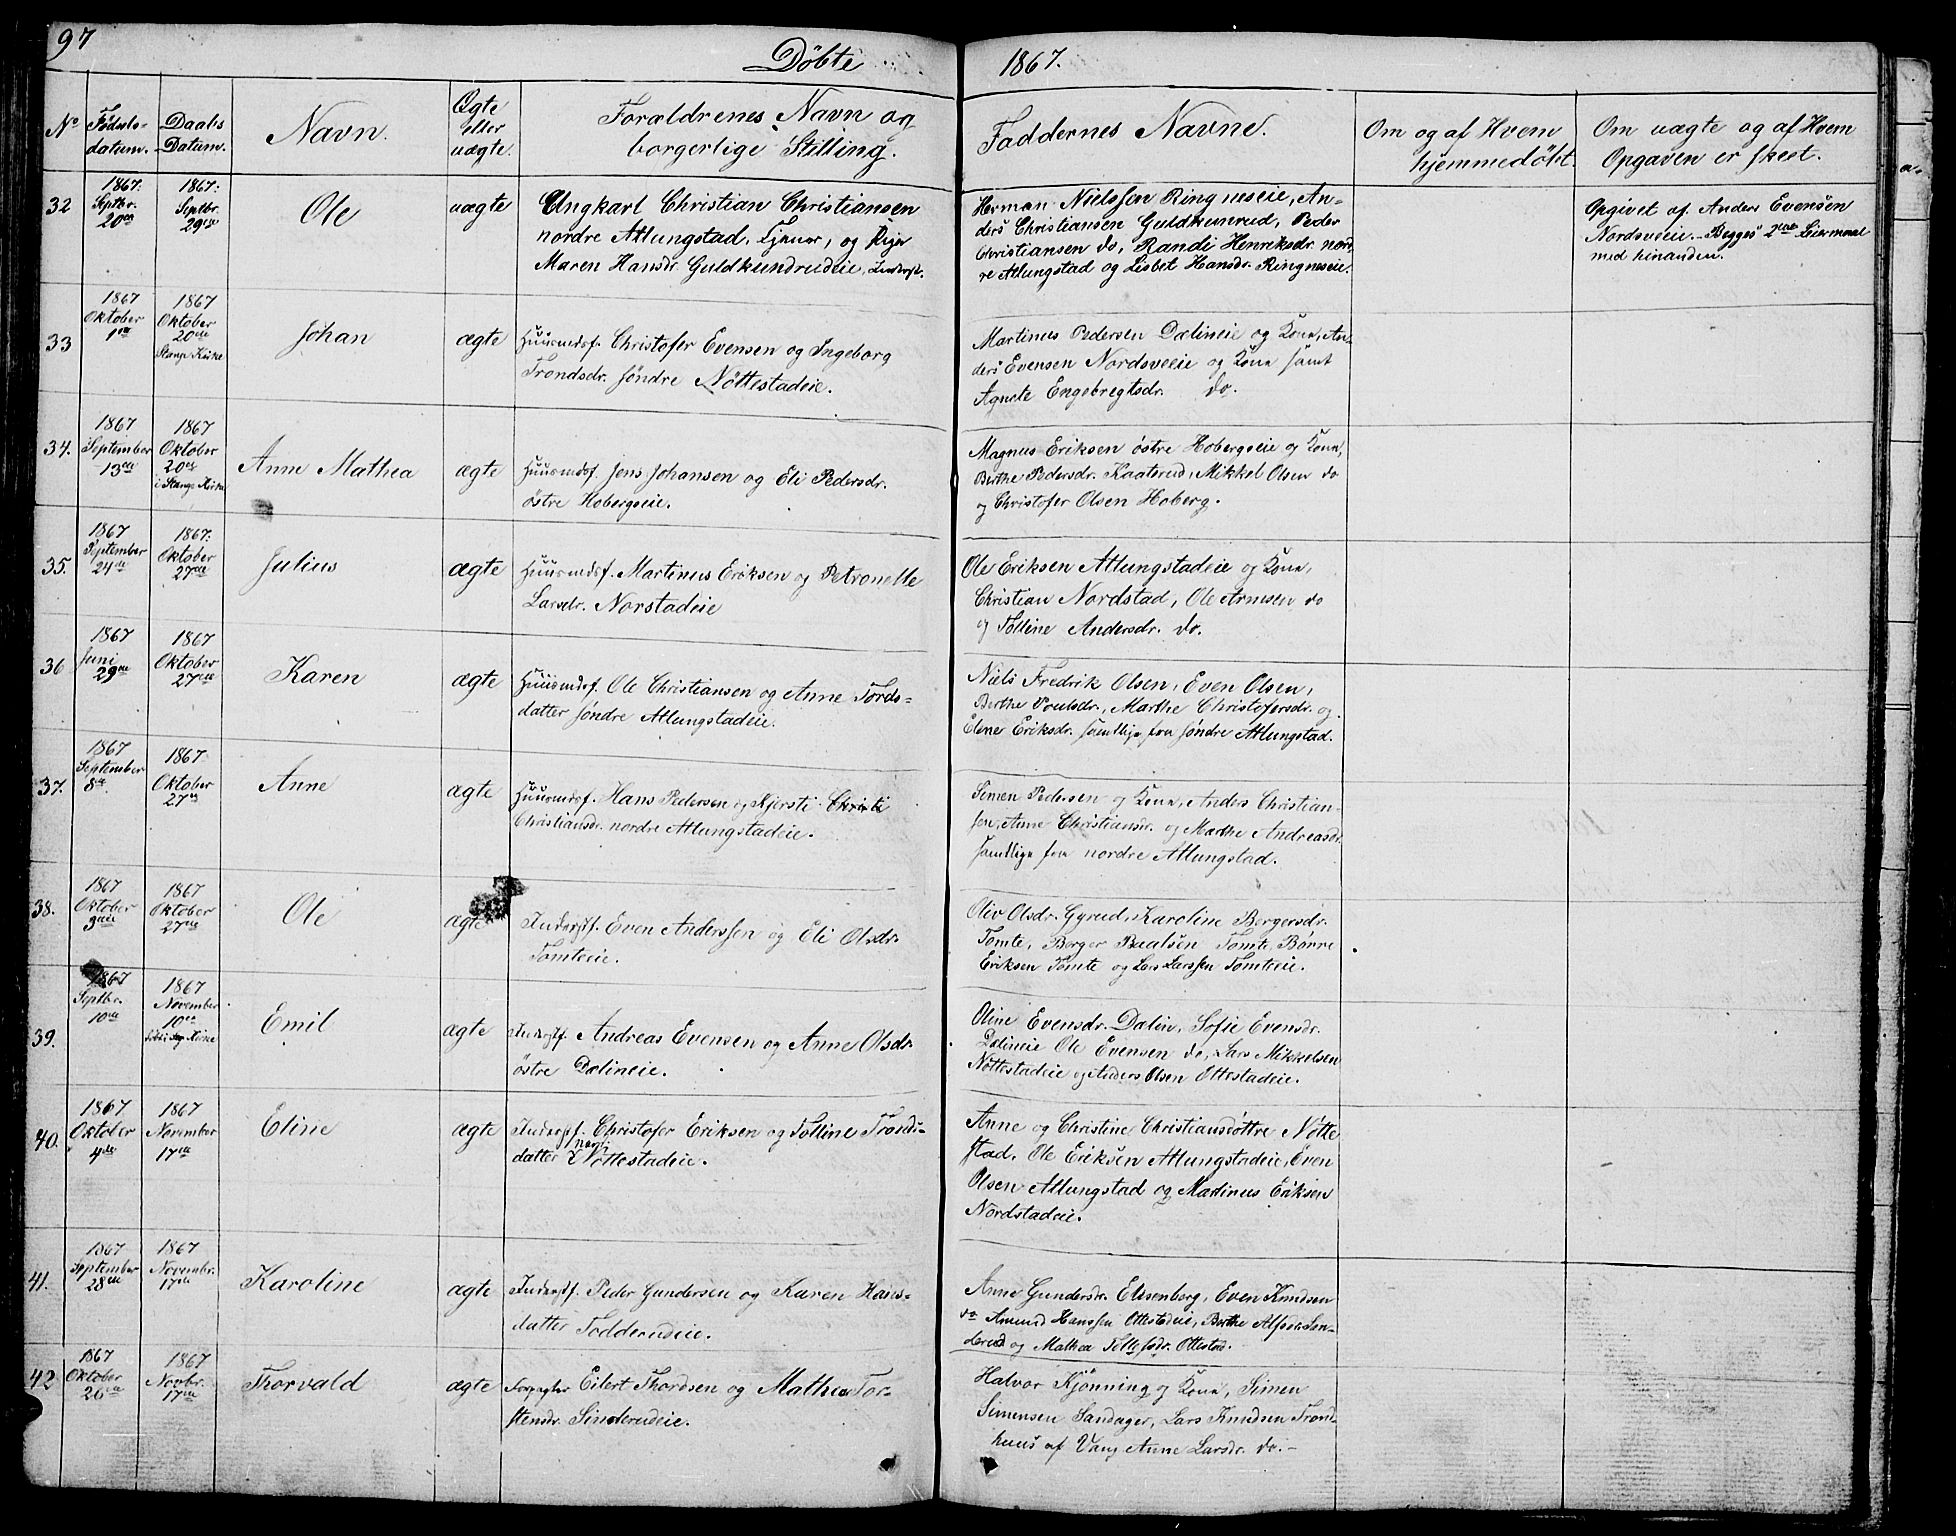 97
Døbte 1867.
No Fødsels- datum. Daabs Datum. Navn. Ægte eller uægte. Forældrenes Navn og borgerlige Stilling. Faddernes Navne. Om og af Hvem hjemmedøbt. Om uægte og af Hvem Opgaven er skeet.
32 1867. Septbr. 20de 1867: Septbr. 29de Ole uægte
Ungkarl Christian Christiansen
nordre Atlungstad, Tjener, og Pige
Maren Hansdr. Guldkundrudeie, Inderst.
Herman Nielssen Ringneseie, An-
ders Christiansen Guldkunrud, Peder
Christiansen do, Randi Henriksdr. nord-
re Atlungstad og Lisbet Hansdr. Ringneseie.
Opgivet af Anders Evensen
Nordsveeie. Begges 2det Leiermaal
med hinanden.
33 1867 Oktober 1ste 1867 Oktober 20de Stange Kirke Johan ægte
Huusmdsf. Christofer Evensen og Ingeborg
Trondsdr. søndre Nøttestadeie.
Martinus Pedersen Dælineie og Kone, An-
ders Evensen Nordsveeie og Kone samt
Agnete Engebregtsdr. do.
34. 1867 September 13de 1867 Oktober 20de i Stange Kirke Anne Mathea ægte
Huusmdsf. Jens Johansen og Eli Pedersdr.
østre Hobergseie.
Magnus Eriksen østre Hobergseie og Kone,
Berthe Pedersdr. Kaatsrud, Mikkel Olsen do
og Christofer Olsen Hoberg.
35. 1867 September 24de 1867: Oktober 27de Julius ægte
Huusmdsf. Martinus Eriksen og Petronelle
Larsdr. Norstadeie
Ole Eriksen Atlungstadeie og Kone,
Christian Nordstad, Ole Arnesen do
og Tolline Andersdr. do.
36 1867 Juni 29de 1867 Oktober 27de Karen ægte
Huusmdsf. Ole Christiansen og Anne Tords-
datter søndre Atlungstadeie.
Niels Fredrik Olsen, Even Olsen,
Berthe Poulsdr., Marthe Christofersdr. og
Elene Eriksdr. samtlige fra søndre Atlungstad.
37. 1867 September 8de 1867. Oktober 27de Anne ægte
Huusmdsf. Hans Pedersen og Kjersti Christi
Christiansdr. nordre Atlungstadeie.
Simen Pedersen og Kone, Anders Christian-
sen, Anne Christiansdr. og Marthe Andreasdr.
samtlige fra nordre Atlungstad.
38. 1867 Oktober 3die 1867 Oktober 27de Ole ægte
Inderstf. Even Anderssen og Eli Olsdr.
Tomteie.
Oliv Olsdr. Gyrud, Karoline Borgersdr.
Tomte, Borger Paalsen Tomte, Børre
Eriksen Tomte og Lars Larssen Tomteie.
39. 1867 Septbr. 10de 1867 November 10de Emil ægte
Inderstf. Andreas Evensen og Anne Olsdr.
østre Dælineie.
Oline Evensdr. Dælin, Sofie Evensdr.
Dælineie Ole Evensen do, Lars Mikkelsen
Nøttestadeie og Anders Olsen Ottestadeie.
40. 1867 Oktober 4de 1867 November 17de Eline ægte
Inderstf. Christofer Eriksen og Tolline Tronds-
datter Nøttestadeie.
Anne og Christine Christiansdøttre Nøtte
stad. Ole Eriksen Atlungstadeie, Even
Olsen Atlungstad og Martinus Eriksen
Nordstadeie.
41. 1867 September 28de 1867 Novembr. 17de Karoline ægte
Inderstf. Peder Gundersen og Karen Hans-
datter Todderudeie.
Anne Gundersdr. Elisenberg, Even Knudsen
do Amund Hanssen Ottestadeie, Berthe Alfsdr. Sen-
derud og Mathea Tollefsdr. Ottestad.
42 1867 Oktober 20de 1867 Novbr. 17de Thorvald ægte
Forpagter Eilert Thordsen og Mathea Tor-
stensdr. Sinderudeie.
Halvor Kjønning og Kone, Simen
Simensen Sandager, Lars Knudsen Trond-
huus af Vang Anne Larsdr. do.-